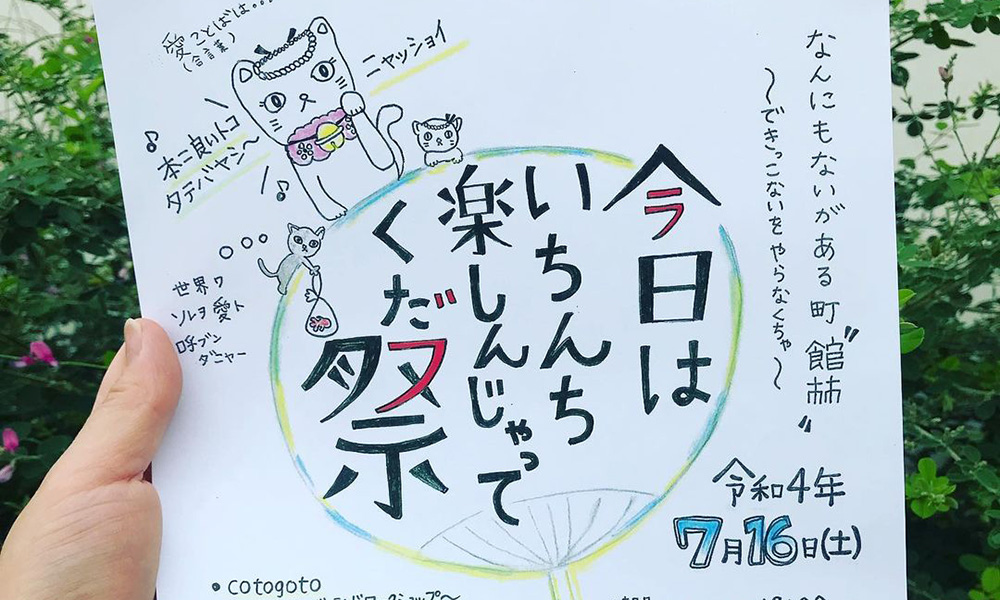 なんにもないがある町〝館林〟
〜できっこないをやらなくちゃ〜
今日は
いちんち
楽しんじゃって
くだ祭
愛ことばは・・・
(合言葉)
ニャッショイ
♪本ニ良いトコ
タテバヤシ〜♪
世界ワ
ソレヲ愛ト
呼ブン
ダニャー
令和4年
7月16日(土)
• cotogoto